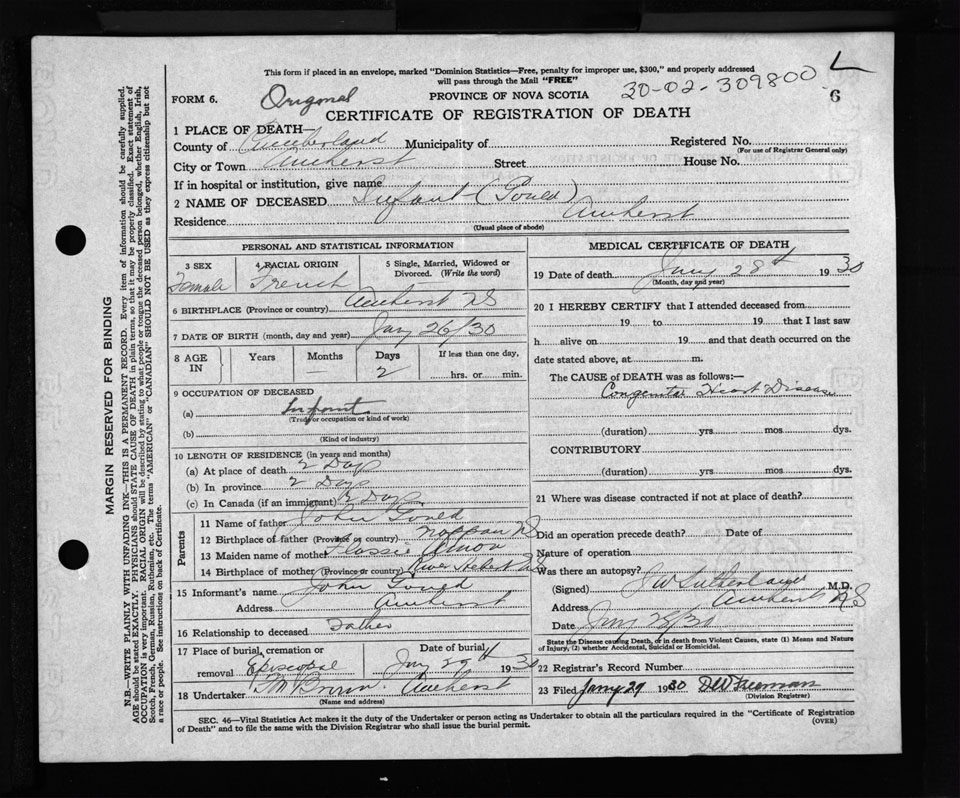 This form if placed in an envelope, marked "Dominion Statistics—Free, penalty for improper use, $300," and properly addressed
will pass through the Mail "FREE"
FORM 6. Original PROVINCE OF NOVA SCOTIA 30-02-309800 L 6
CERTIFICATE OF REGISTRATION OF DEATH
1 PLACE OF DEATH—
County of Cumberland Municipality of Registered No.
(For use of Registrar General only)
City or Town Amherst Street House No.
If in hospital or institution, give name
2 NAME OF DECEASED Infant (Gould)
Residence Amherst
(Usual place of abode)
PERSONAL AND STATISTICAL INFORMATION
3 SEX 4 RACIAL ORIGIN 5 Single, Married, Widowed or
Divorced. (Write the word)
Female French
6 BIRTHPLACE (Province or country) Amherst NS
7 DATE OF BIRTH (month, day and year) Jany 26/30
8 AGE IN Years Months Days If less than one day,
— 2 hrs. or min.
9 OCCUPATION OF DECEASED
(a) Infant
(Trade or occupation or kind of work)
(b)
(Kind of industry)
10 LENGTH OF RESIDENCE (in years and months)
(a) At place of death 2 Days
(b) In province 2 Days
(c) In Canada (if an immigrant) 2 Days
Parents
11 Name of father John Gould
12 Birthplace of father (Province or country) Nappan NS
13 Maiden name of mother Flossie
14 Birthplace of mother (Province or country) River Hebert NS
15 Informant's name John Gould
Address Amherst
16 Relationship to deceased Father
17 Place of burial, cremation or removal Date of burial
Episcopal Jany 29th 1930
18 Undertaker Brown. Amherst
(Name and address)
MEDICAL CERTIFICATE OF DEATH
19 Date of death Jany 28th 1930
(Month, day and year)
20 I HEREBY CERTIFY that I attended deceased from
19 to 19 that I last saw
h alive on 19 and that death occurred on the
date stated above, at m.
The CAUSE OF DEATH was as follows:—
Congenital Heart Disease
(duration) yrs mos dys.
CONTRIBUTORY
(duration) yrs. mos. dys.
21 Where was disease contracted if not at place of death?
Did an operation precede death? Date of
Nature of operation
Was there an autopsy?
(Signed) J W Sutherland M.D.
Address Amherst N S
Date Jany 28/30
State the Disease causing Death, or in death from Violent Causes, state (1) Means and Nature
of Injury, (2) whether Accidental, Suicidal or Homicidal.
22 Registrar's Record Number
23 Filed Jany 29 1930 DW Freeman
(Division Registrar)
SEC. 46—Vital Statistics Act makes it the duty of the Undertaker or person acting as Undertaker to obtain all the particulars required in the "Certificate of Registration
of Death" and to file the same with the Division Registrar who shall issue the burial permit.
(OVER)
MARGIN RESERVED FOR BINDING
N.B.—WRITE PLAINLY WITH UNFADING INK—THIS IS A PERMANENT RECORD. Every item of information should be carefully supplied.
AGE should be stated EXACTLY. PHYSICIANS should STATE CAUSE OF DEATH in plain terms, so that it may be properly classified. Exact statement of
OCCUPATION is very important. RACIAL ORIGIN will be described by stating to what people or tongue the deceased person belonged, whether English, Irish,
Scotch, French, German, Russian, Ruthenian, etc. The terms "AMERICAN" or "CANADIAN" SHOULD NOT BE USED as they express citizenship but not
a race or people. See instructions on back of Certificate.